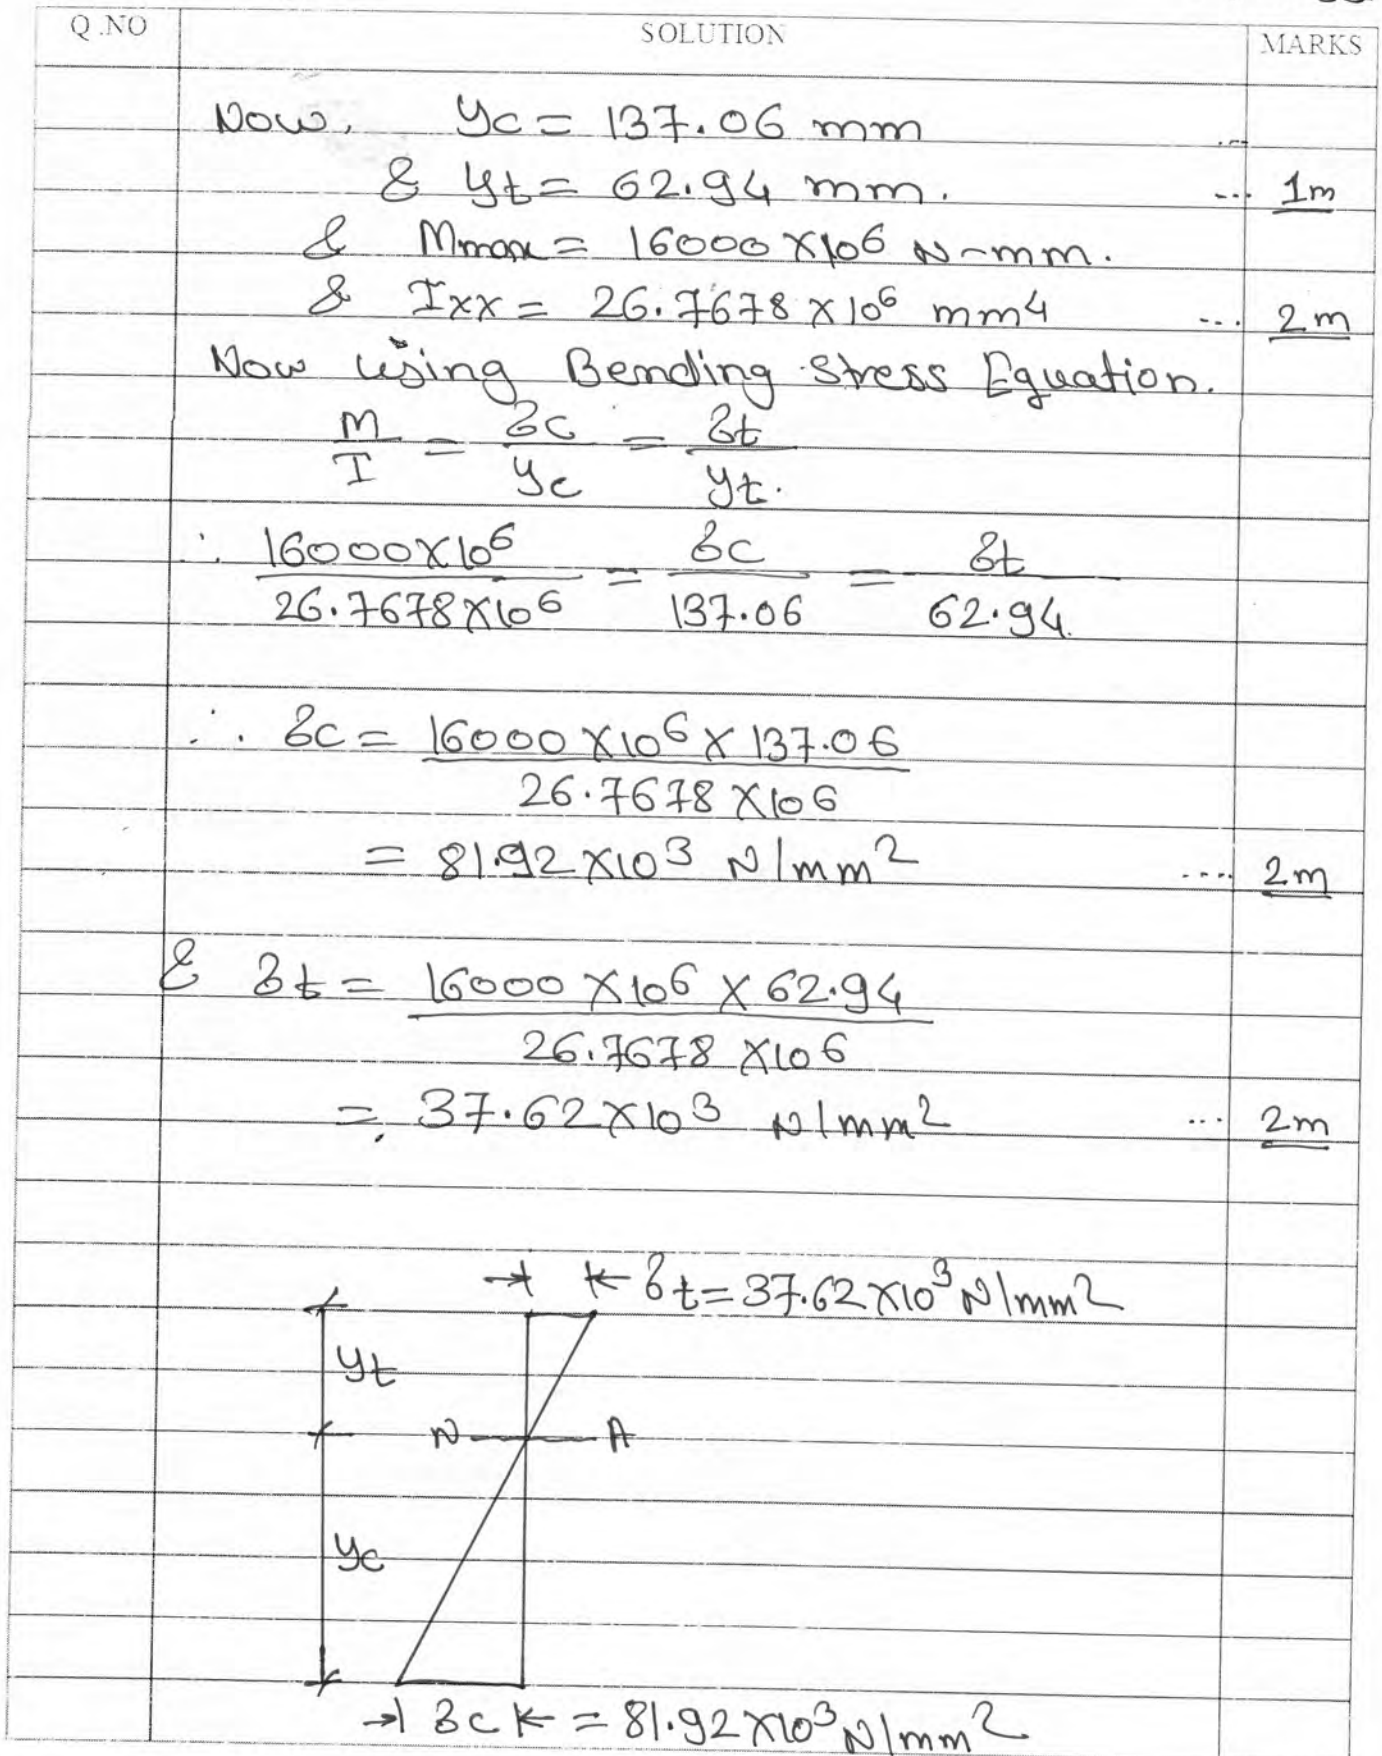 Q.NO SOLUTION MARKS
Now, yc = 137.06 mm ...
& yt = 62.94 mm. ... 1m
& Mmax = 16000 X106 N-mm.
& Ixx = 26.7678 X 10⁶ mm4 ... 2m
Now using Bending Stress Equation.
M/I = σc/yc = σt/yt.
∴ 16000X10⁶/26.7678X106 = σc/137.06 = σt/62.94.
∴ σc = 16000 X10⁶ X 137.06
26.7678 X106
= 81.92 X10³ N/mm² .... 2m
& σt = 16000 X10⁶ X 62.94
26.7678 X106
= 37.62X10³ N/mm² ... 2m
σt = 37.62X10³ N/mm²
yt
N A
yc
σc = 81.92X10³ N/mm²